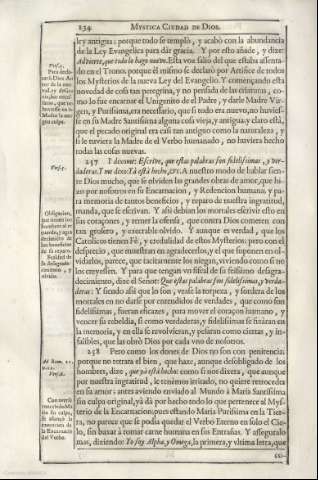 234 MYSTICA CIUDAD DE DIOS.
ley antigua: porque todo se templò, y acabò con la abundancia
de la Ley Evangelica para dàr gracia. Y por esto añade, y dize:
Advierte, que todo lo hago nuevo. Esta voz saliò del que estaba assenta-
do en el Trono, porque èl mismo se declarò por Artifice de todos
los Mysterios de la nueva Ley del Evangelio. Y començando esta
novedad de cosa tan peregrina, y no pensada de las criaturas, co-
mo lo fue encarnar el Unigenito de el Padre, y darle Madre Vir-
gen, y Purissima, era necessario, que si todo era nuevo, no huvies-
se en su Madre Santissima alguna cosa vieja, y antigua: y claro està,
que el pecado original era casi tan antiguo como la naturaleza, y
si le tuviera la Madre de el Verbo humanado, no huviera hecho
todas las cosas nuevas.
257 I dixome: Escrive, que estas palabras son fidelissimas, y ver-
daderas. I me dixo: Yà està hecho, &c. A nuestro modo de hablar sien-
te Dios mucho, que se olviden las grandes obras de amor, que hi-
zo por nosotros en su Encarnacion, y Redencion humana; y pa-
ra memoria de tantos beneficios, y reparo de nuestra ingratitud,
manda, que se escrivan. Y assi debian los mortales escrivir esto en
sus coraçones, y temer la ofensa, que contra Dios cometen con
tan grosero, y execrable olvido. Y aunque es verdad, que los
Catolicos tienen Fè, y credulidad de estos Mysterios: pero con el
desprecio, que muestran en agradecerlos, y el que suponen en ol-
vidarlos, parece, que tacitamente los niegan, viviendo como si no
los creyessen. Y para que tengan un fiscal de su feissimo desagra-
decimiento, dize el Señor: Que estas palabras son fidelissimas, y verda-
deras: Y siendo assi que lo son, vease la torpeza, y sordera de los
mortales en no darse por entendidos de verdades, que como son
fidelissimas, fueran eficazes, para mover el coraçon humano, y
vencer su rebeldìa, si como verdaderas, y fidelissimas se fixàran en
la memoria, y en ella se revolvieran, y pesàran como ciertas, y in-
falibles, que las obrò Dios por cada uno de nosotros.
258 Pero como los dones de Dios no son con penitencia;
porque no retrata el bien, que haze, aunque desobligado de los
hombres, dize, que yà està hecho: como si nos dixera, que aunque
por nuestra ingratitud, le tenemos irritado, no quiere retroceder
en su amor: antes aviendo enviado al Mundo à Maria Santissima
sin culpa original, yà dà por hecho todo lo que pertenece al Mys-
terio de la Encarnacion; pues estando Maria Purissima en la Tier-
ra, no parece que se podia quedar el Verbo Eterno en solo el Cie-
lo, sin baxar à tomar carne humana en sus Entrañas. Y asseguralo
mas, diziendo: Yo soy Alpha, y Omega, la primera, y ultima letra, que
Vers. 5.
Obligacion,
Fealdad de
Ad Rom. 11.
Vers. 6.
del Verbo.